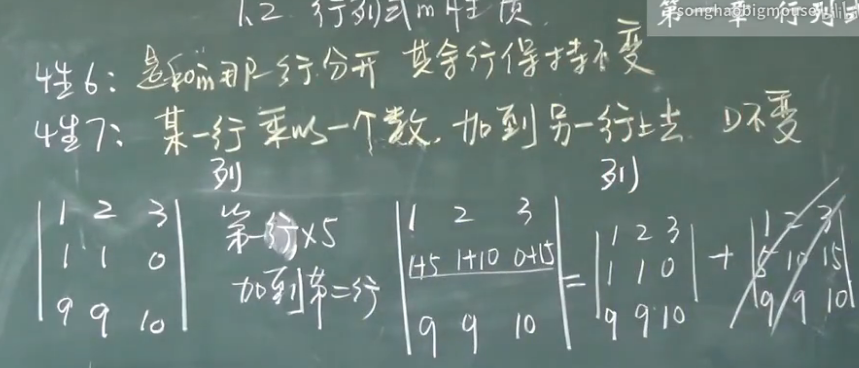 1.2 行列式的性质
第一章 行列式
songhaobigmouse
性6: 是和的那一行分开 其余行保持不变
性7: 某一行乘以一个数, 加到另一行上去 D不变
列 列
1 2 3
1 1 0
9 9 10
第一行×5
加到第二行
1 2 3
1+5 1+10 0+15
9 9 10
=
1 2 3
1 1 0
9 9 10
+
1 2 3
5 10 15
9 9 10